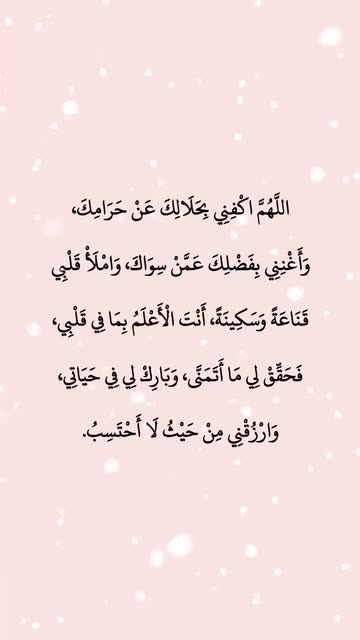 اللَّهُمَّ اكْفِنِي بِحَلَالِكَ عَنْ حَرَامِكَ،
وَأَغْنِنِي بِفَضْلِكَ عَمَّنْ سِوَاكَ، وَامْلَأْ قَلْبِي
قَنَاعَةً وَسَكِينَةً، أَنْتَ الْأَعْلَمُ بِمَا فِي قَلْبِي،
فَحَقِّقْ لِي مَا أَتَمَنَّى، وَبَارِكْ لِي فِي حَيَاتِي،
وَارْزُقْنِي مِنْ حَيْثُ لَا أَحْتَسِبُ.